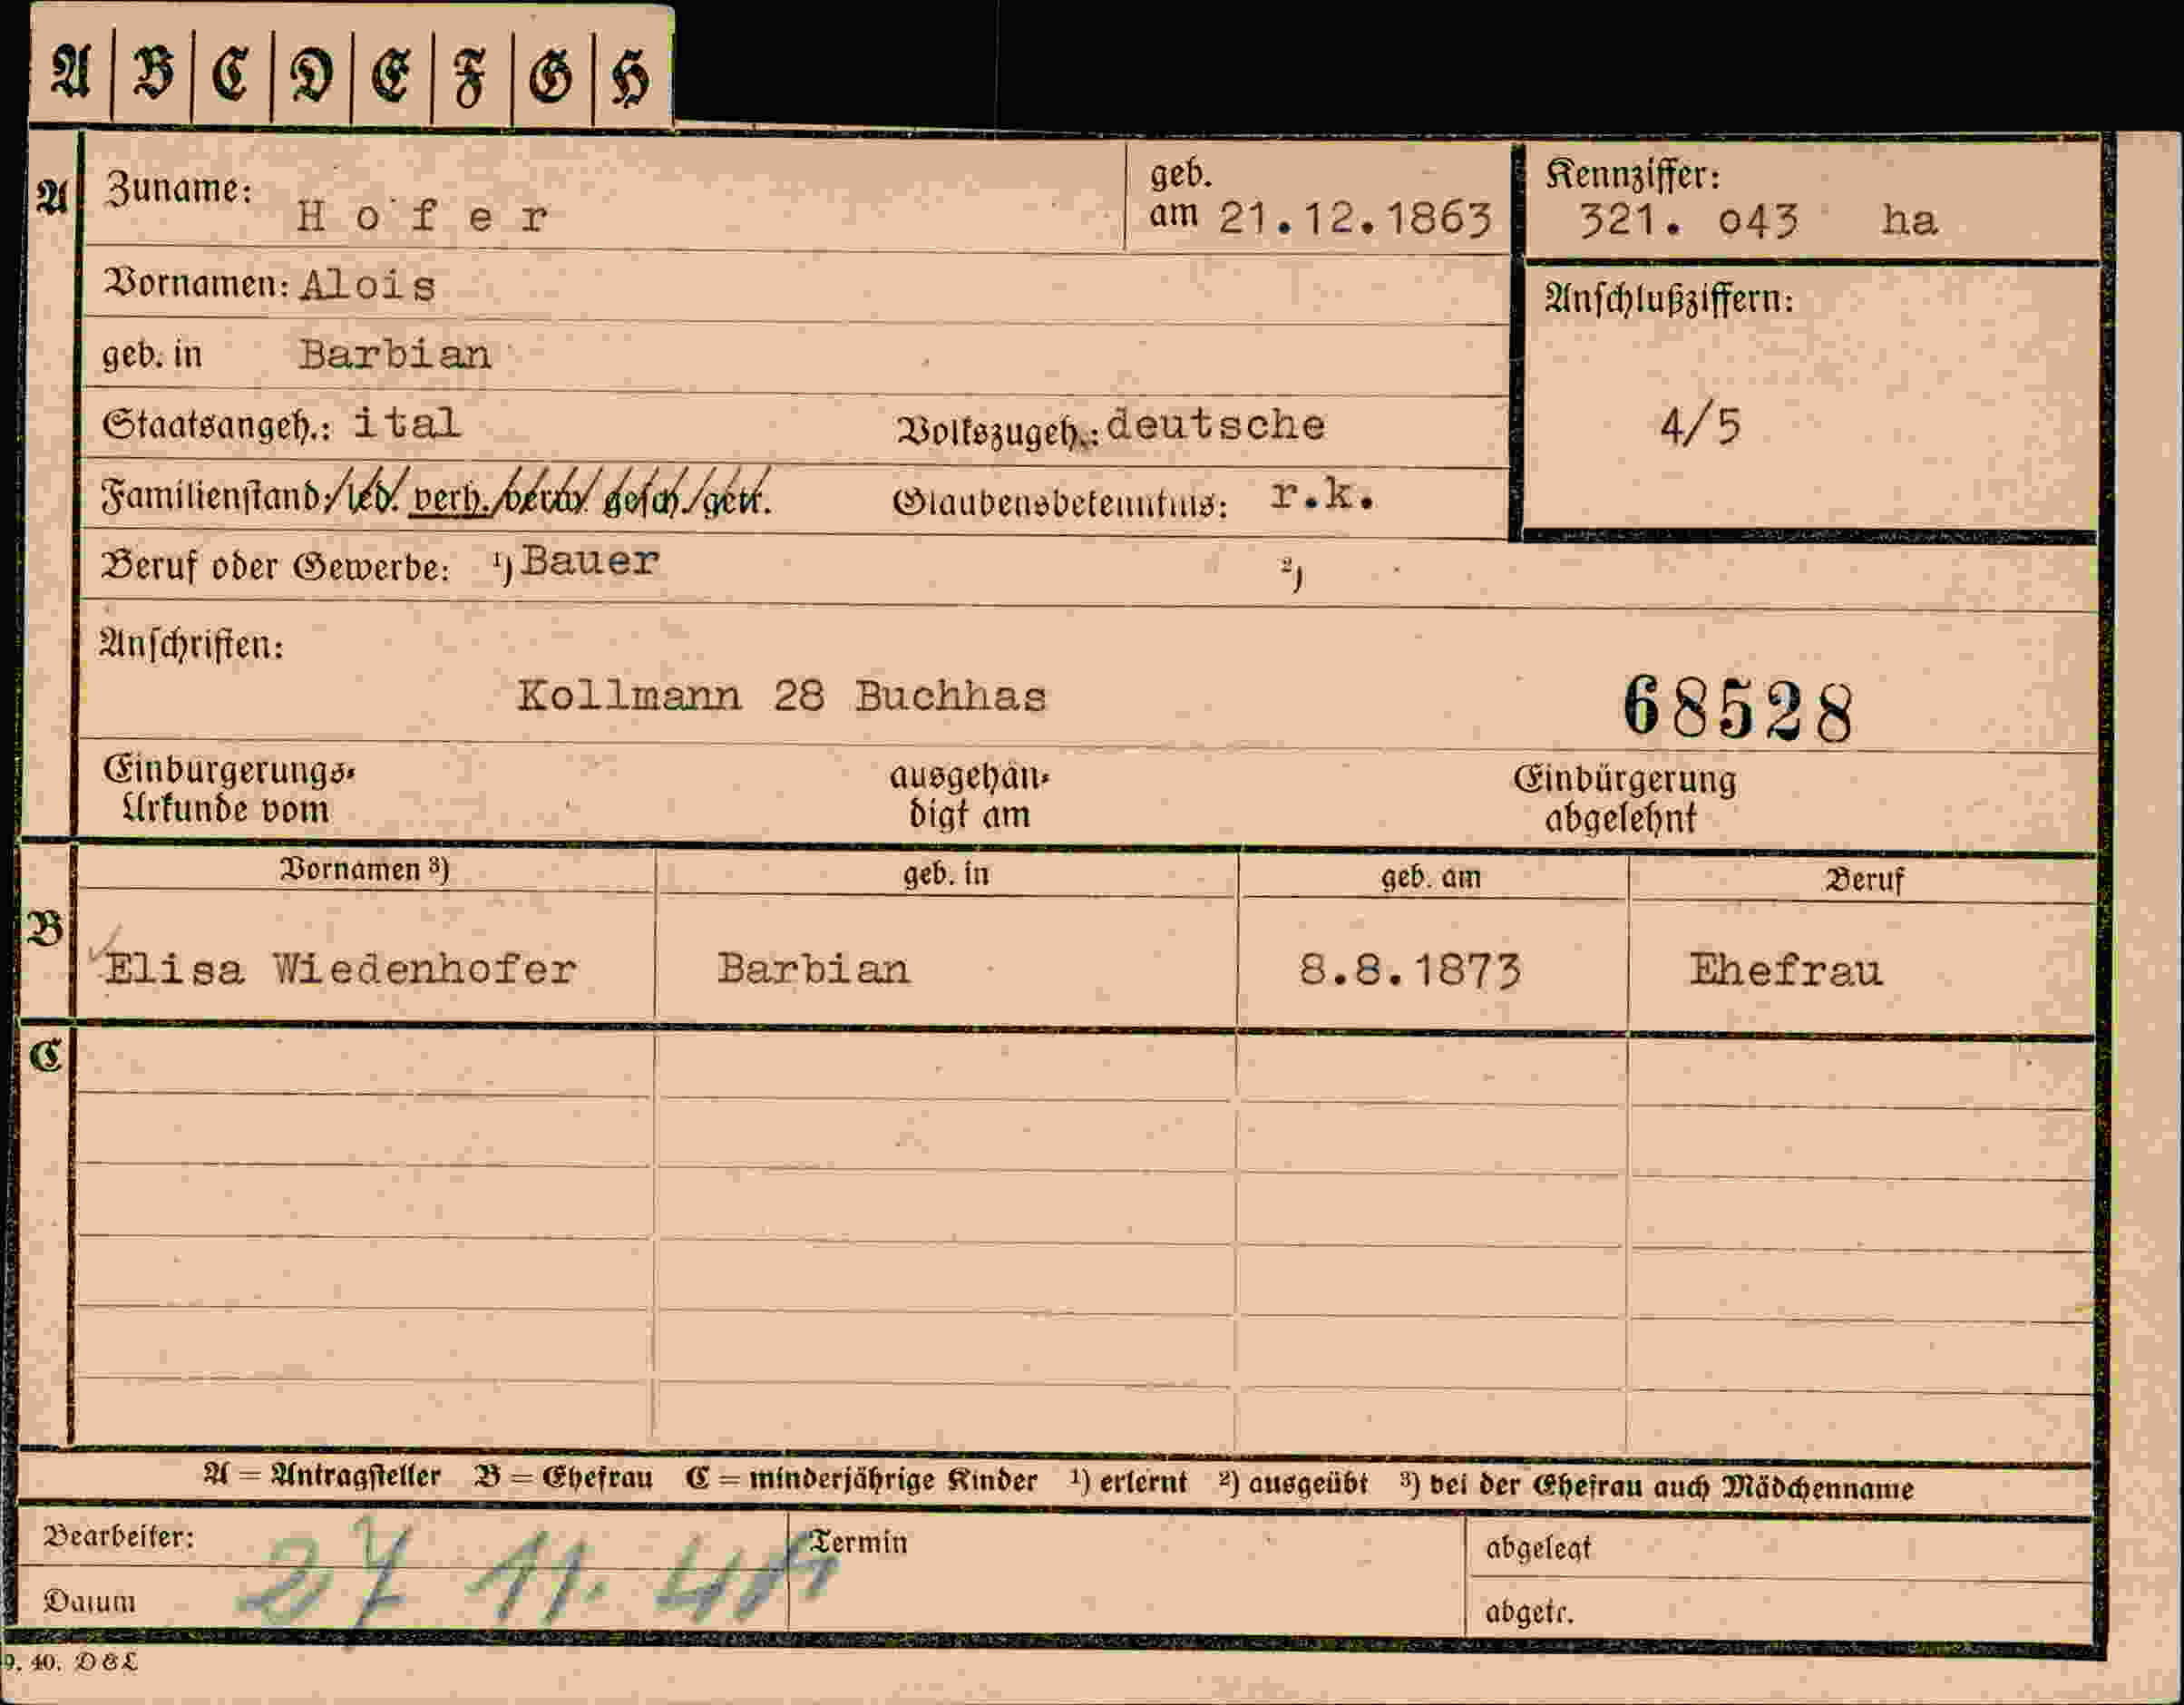 A B C D E F G H
A Zuname: Hofer geb. am 21.12.1863 Kennziffer: 321. o43 ha
Vornamen: Alois Anschlußziffern:
geb. in Barbian
Staatsangeh.: ital Volkszugeh.: deutsche 4/5
Familienstand: led. verh. verw. gesch. getr. Glaubensbekenntnis: r.k.
Beruf oder Gewerbe: ¹) Bauer ²)
Anschriften:
Kollmann 28 Buchhas 68528
Einbürgerungs- ausgehän- Einbürgerung
Urkunde vom digt am abgelehnt
Vornamen ³) geb. in geb. am Beruf
B Elisa Wiedenhofer Barbian 8.8.1873 Ehefrau
C
A = Antragsteller B = Ehefrau C = minderjährige Kinder ¹) erlernt ²) ausgeübt ³) bei der Ehefrau auch Mädchenname
Bearbeiter: Termin abgelegt
Datum 27 11. abgetr.
9. 40. DEL